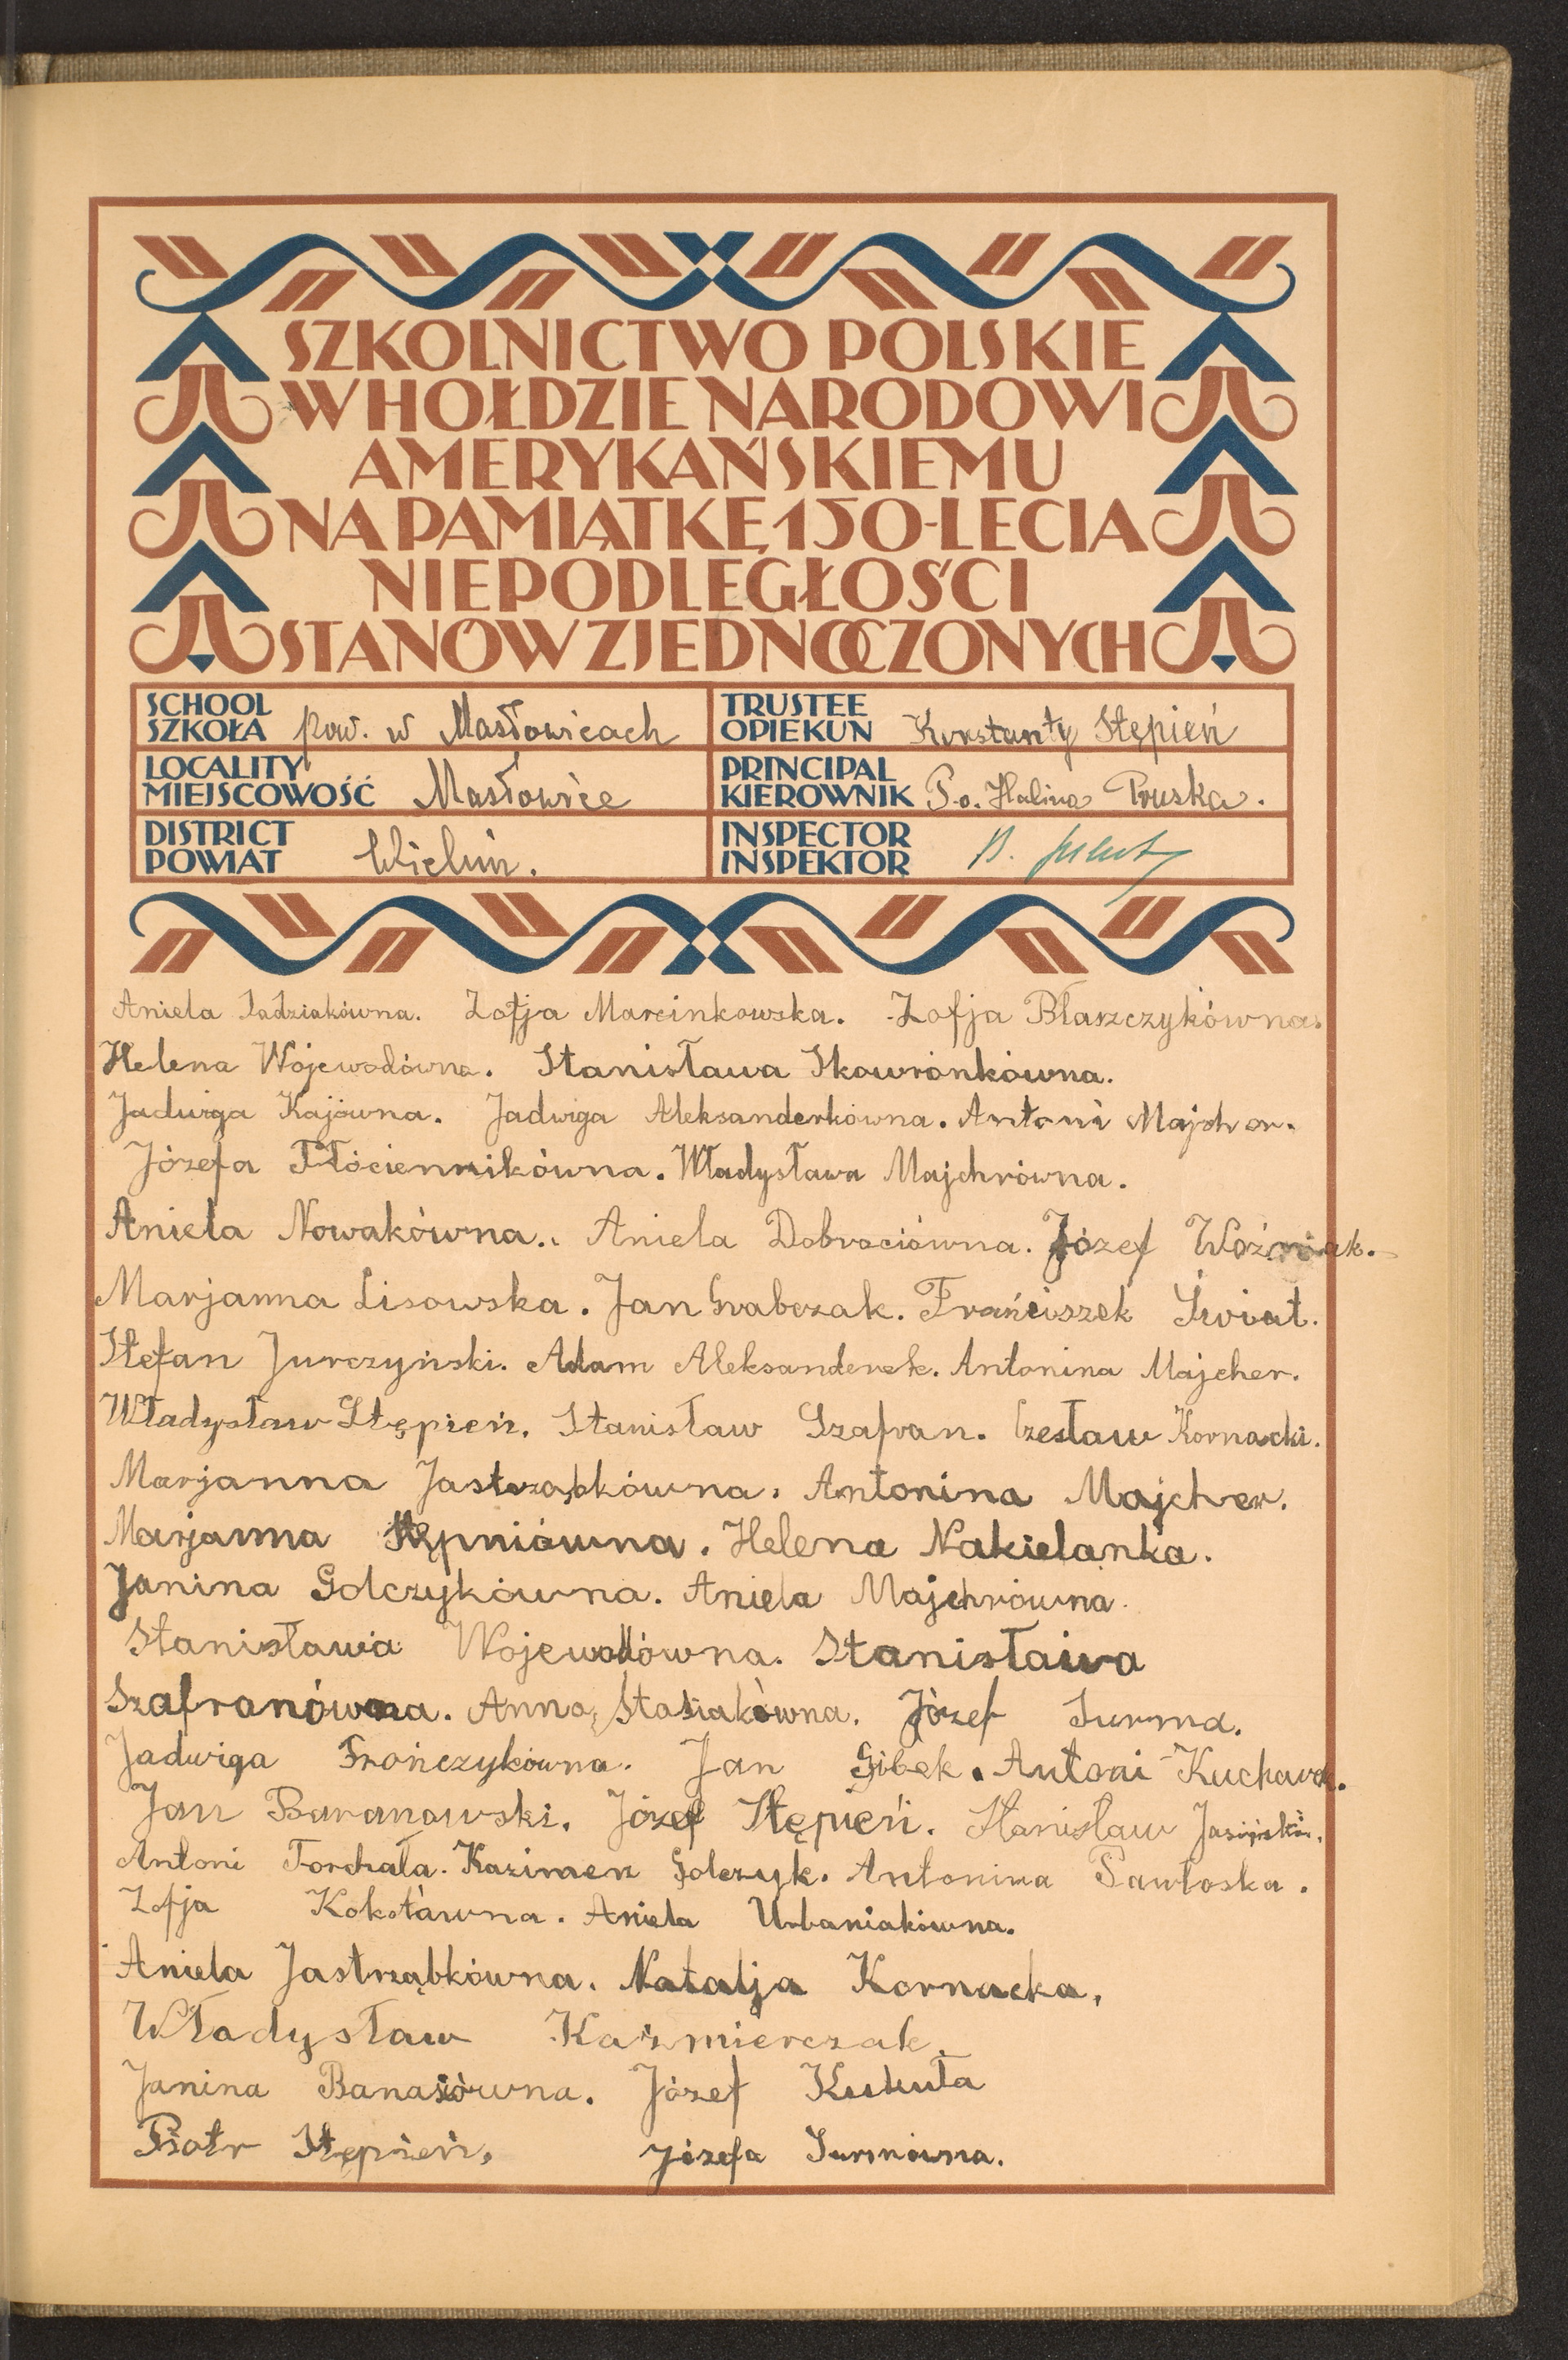 SZKOLNICTWO POLSKIE
W HOŁDZIE NARODOWI
AMERYKAŃSKIEMU
NA PAMIĄTKĘ 150-LECIA
NIEPODLEGŁOŚCI
STANÓW ZJEDNOCZONYCH
SCHOOL
SZKOŁA pow. w Masłowicach
TRUSTEE
OPIEKUN Konstanty Stępień
LOCALITY
MIEJSCOWOŚĆ Masłowice
PRINCIPAL
KIEROWNIK P.o. Halina Pruska.
DISTRICT
POWIAT Wieluń.
INSPECTOR
INSPEKTOR
Aniela Zofja Marcinkowska. Zofja Błaszczykówna.
Helena Wojewodówna. Stanisława Skowronkówna.
Jadwiga Kajówna. Jadwiga Aleksanderkówna. Antoni Majcher.
Józefa Płóciennikówna. Władysława Majchrówna.
Aniela Nowakówna. Aniela Dobraciówna. Józef Woźniak.
Marjanna Lisowska. Jan Grabczak. Frańciszek Świat.
Stefan Jurczyński. Adam Aleksanderek. Antonina Majcher.
Władysław Stępień. Stanisław Szafran. Czesław Kornacki.
Marjanna Jastrząbkówna. Antonina Majcher.
Marjanna Stępniówna. Helena Nakielanka.
Janina Golczykówna. Aniela Majchrówna.
Stanisława Wojewodówna. Stanisława
Szafranówna. Anna Stasiakówna. Józef Surma.
Jadwiga Frończykówna. Jan Gibek. Antoni Kuchara.
Jan Baranowski. Józef Stępień. Stanisław Jasiński.
Antoni Torchała. Kazimierz Golczyk. Antonina Pawłoska.
Zofja Kokotówna. Aniela Urbaniakówna.
Aniela Jastrząbkówna. Natalja Kornacka.
Władysław Kaźmierczak.
Janina Banasiówna. Józef Kukuła
Piotr Stępień. Józefa Surmówna.